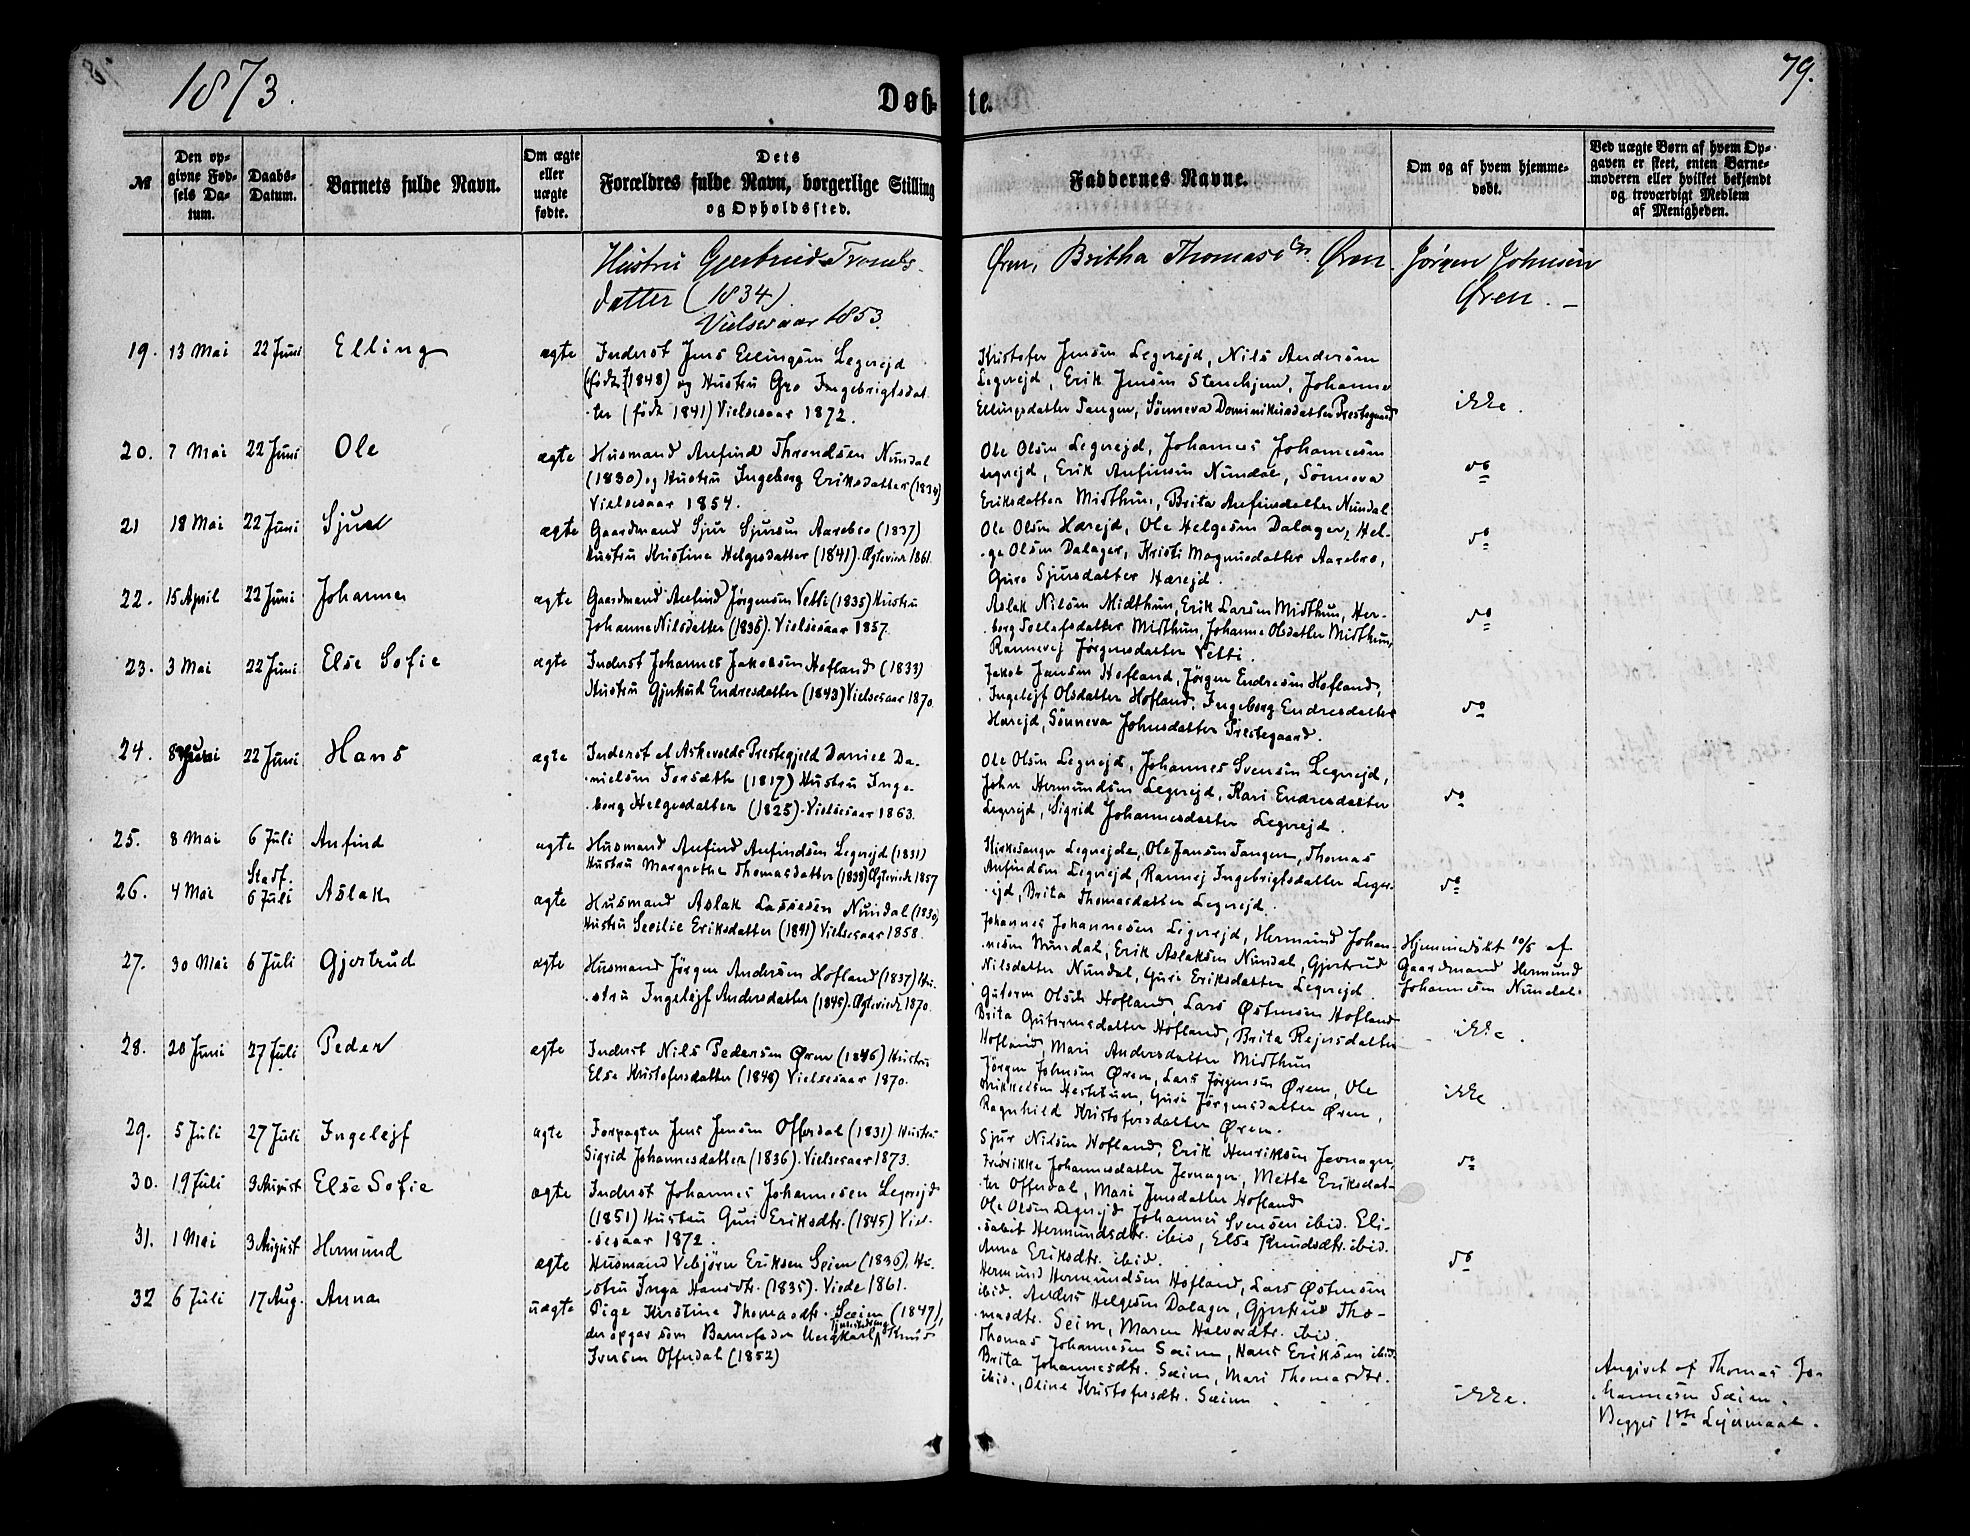 1873.
Døbte.
79.
№
Den opgivne Fødsels Datum.
Daabs-Datum.
Barnets fulde Navn.
Om ægte eller uægte fødte.
Dets Forældres fulde Navn, borgerlige Stilling og Opholdssted.
Faddernes Navne.
Om og af hvem hjemmedøbt.
Ved uægte Børn af hvem Opgaven er skeet, enten Barnemoderen eller hvilket bekjendt og troværdigt Medlem af Menigheden.
Hustru Gjertrud Tronds-
datter (1834).
Vielsesaar 1853.
Øren, Britha Thomasd. Øren.
Jørgen Johnsen
Øren. –
19. 13 Mai 22 Juni Elling ægte
Inderst Jens Ellingsen Legrejd
(født 1848) og Hustru Gro Ingebrigtsdat-
ter (født 1841) Vielsesaar 1872.
Kristofer Jensen Legrejd, Nils Andersen
Legrejd, Erik Jensen Stenehjem, Johanne
Ellingsdatter Tangen, Sønneva Dominikusdatter Prestegaard
ikke.
20. 7 Mai 22 Juni Ole ægte
Husmand Anfind Throndsen Nundal
(1830) og Hustru Ingeborg Eriksdatter (1834)
Vielsesaar 1854.
Ole Olsen Legrejd, Johannes Johannesen
Legrejd, Erik Anfinsen Nundal, Sønneva
Eriksdatter Midthun, Brita Anfinsdatter Nundal.
do
21 18 Mai 22 Juni Sjur ægte
Gaardmand Sjur Sjursen Aarebro (1837)
Hustru Kristine Helgesdatter (1841). Ægteviet 1861.
Ole Olsen Hærejd, Ole Helgesen Dalager, Hel-
ge Olsen Dalager, Kristi Magnusdatter Aarebro,
Guro Sjursdatter Hærejd.
do
22. 15 April 22 Juni Johannes ægte
Gaardmand Anfind Jørgensen Vetti (1835) Hustru
Johanne Nilsdatter (1836). Vielsesaar 1857.
Aslak Nilsen Midthun, Erik Larsen Midthun, Her-
borg Tollefsdatter Midthun, Johanne Olsdatter Midthun,
Rannevej Jørgensdatter Vetti.
do
23. 3 Mai 22 Juni Else Sofie ægte
Inderst Johannes Jakobsen Hofland (1833)
Hustru Gjertrud Endresdatter (1843) Vielsesaar 1870.
Jakob Jansen Hofland, Jørgen Endresen Hofland,
Ingelejf Olsdatter Hofland, Ingeborg Endresdatter
Hærejd, Sønneva Johnsdatter Prestegaard.
do
24. 8 Juni 22 Juni Hans ægte
Inderst af Askevolds Prestegjeld Daniel Da-
nielsen Forsæth (1817) Hustru Inge-
borg Helgesdatter (1825). Vielsesaar 1863.
Ole Olsen Legrejd, Johannes Svensen Legrejd,
John Hermundsen Legrejd, Kari Endresdatter
Legrejd, Sigrid Johannesdatter Legrejd.
do
25. 8 Mai 6 Juli Anfind ægte
Husmand Anfind Anfindsen Legrejd (1831)
Hustru Margrethe Thomasdatter (1833) Ægteviede 1857
Kirkesanger Legrejde, Ole Jansen Tangen, Thomas
Anfindsen Legrejd, Rannej Ingebrigtsdatter Legr-
ejd, Brita Thomasdatter Legrejd.
do
26. 4 Mai Stadf. 6 Juli Aslak ægte
Husmand Aslak Lassesen Nundal (1830)
Hustru Secilie Eriksdatter (1841) Vielsesaar 1858.
Johannes Johannesen Legrejd, Hermund Johan-
nesen Nundal, Erik Aslaksen Nundal, Gjertrud
Nilsdatter Nundal, Guri Eriksdatter Legrejd.
Hjemmedøbt 10/5 af
Gaardmand Hermund
Johannesen Nundal.
27. 30 Mai 6 Juli Gjertrud ægte
Husmand Jørgen Andersen Hofland (1837) Hu-
stru Ingelejf Andersdatter (1845). Ægteviede 1870.
Gutorm Olsen Hofland, Lars Østensen Hofland
Brita Gutormsdatter Hofland, Brita Rejersdatter
Hofland, Mari Andersdatter Midthun
ikke.
28. 20 Juni 27 Juli Peder ægte
Inderst Nils Pedersen Øren (1846) Hustru
Else Kristofersdatter (1848) Vielsesaar 1870.
Jørgen Johnsen Øren, Lars Jørgensen Øren, Ole
Mikkelsen Hestetun, Guri Jørgensdatter Øren,
Ragnhild Kristofersdatter Øren.
ikke.
29. 5 Juli 27 Juli Ingelejf ægte
Forpagter Jens Jensen Offerdal (1831) Hustru
Sigrid Johannesdatter (1836). Vielsesaar 1873.
Sjur Nilsen Hofland, Erik Henriksen Jevnager,
Fredrikke Johannesdatter Jevnager, Mette Eriksdat-
ter Offerdal, Mari Jensdatter Hofland
do
30. 19 Juli 3 August Else Sofie ægte
Inderst Johannes Johannesen Legrejd
(1851) Hustru Guri Eriksdtr. (1845) Viel-
sesaar 1872.
Ole Olsen Legrejd, Johannes Svensen ibid. Eli-
sabet Hermundsdtr. ibid, Else Knudsdtr. ibid.
Anna Eriksdtr. ibid.
do
31. 1 Mai 3 August Hermund ægte
Husmand Vebjørn Eriksen Seim (1836), Hu-
stru Inga Hansdtr. (1835). Viede 1861.
Hermund Hermundsen Hofland, Lars Østensen
ibid. Anders Helgesen Dalager, Gjertrud Tho-
masdtr. Seim, Maren Halvordtr. ibid.
32 6 Juli 17 Aug. Anna uægte
Pige Kirstine Thomasdtr. Sæim (1847),
der opgav som Barnefader Ungkarl Knud
Iversen Offerdal (1852)
Thomas Johannesen Sæim, Hans Eriksen ibid.
Brita Johannesdtr. Sæim, Mari Thomasdtr.
ibid., Oline Kristofersdtr. Sæim
ikke.
Angivet af Thomas Jo-
hannesen Sæim.
Begges 1ste Lejermaal.